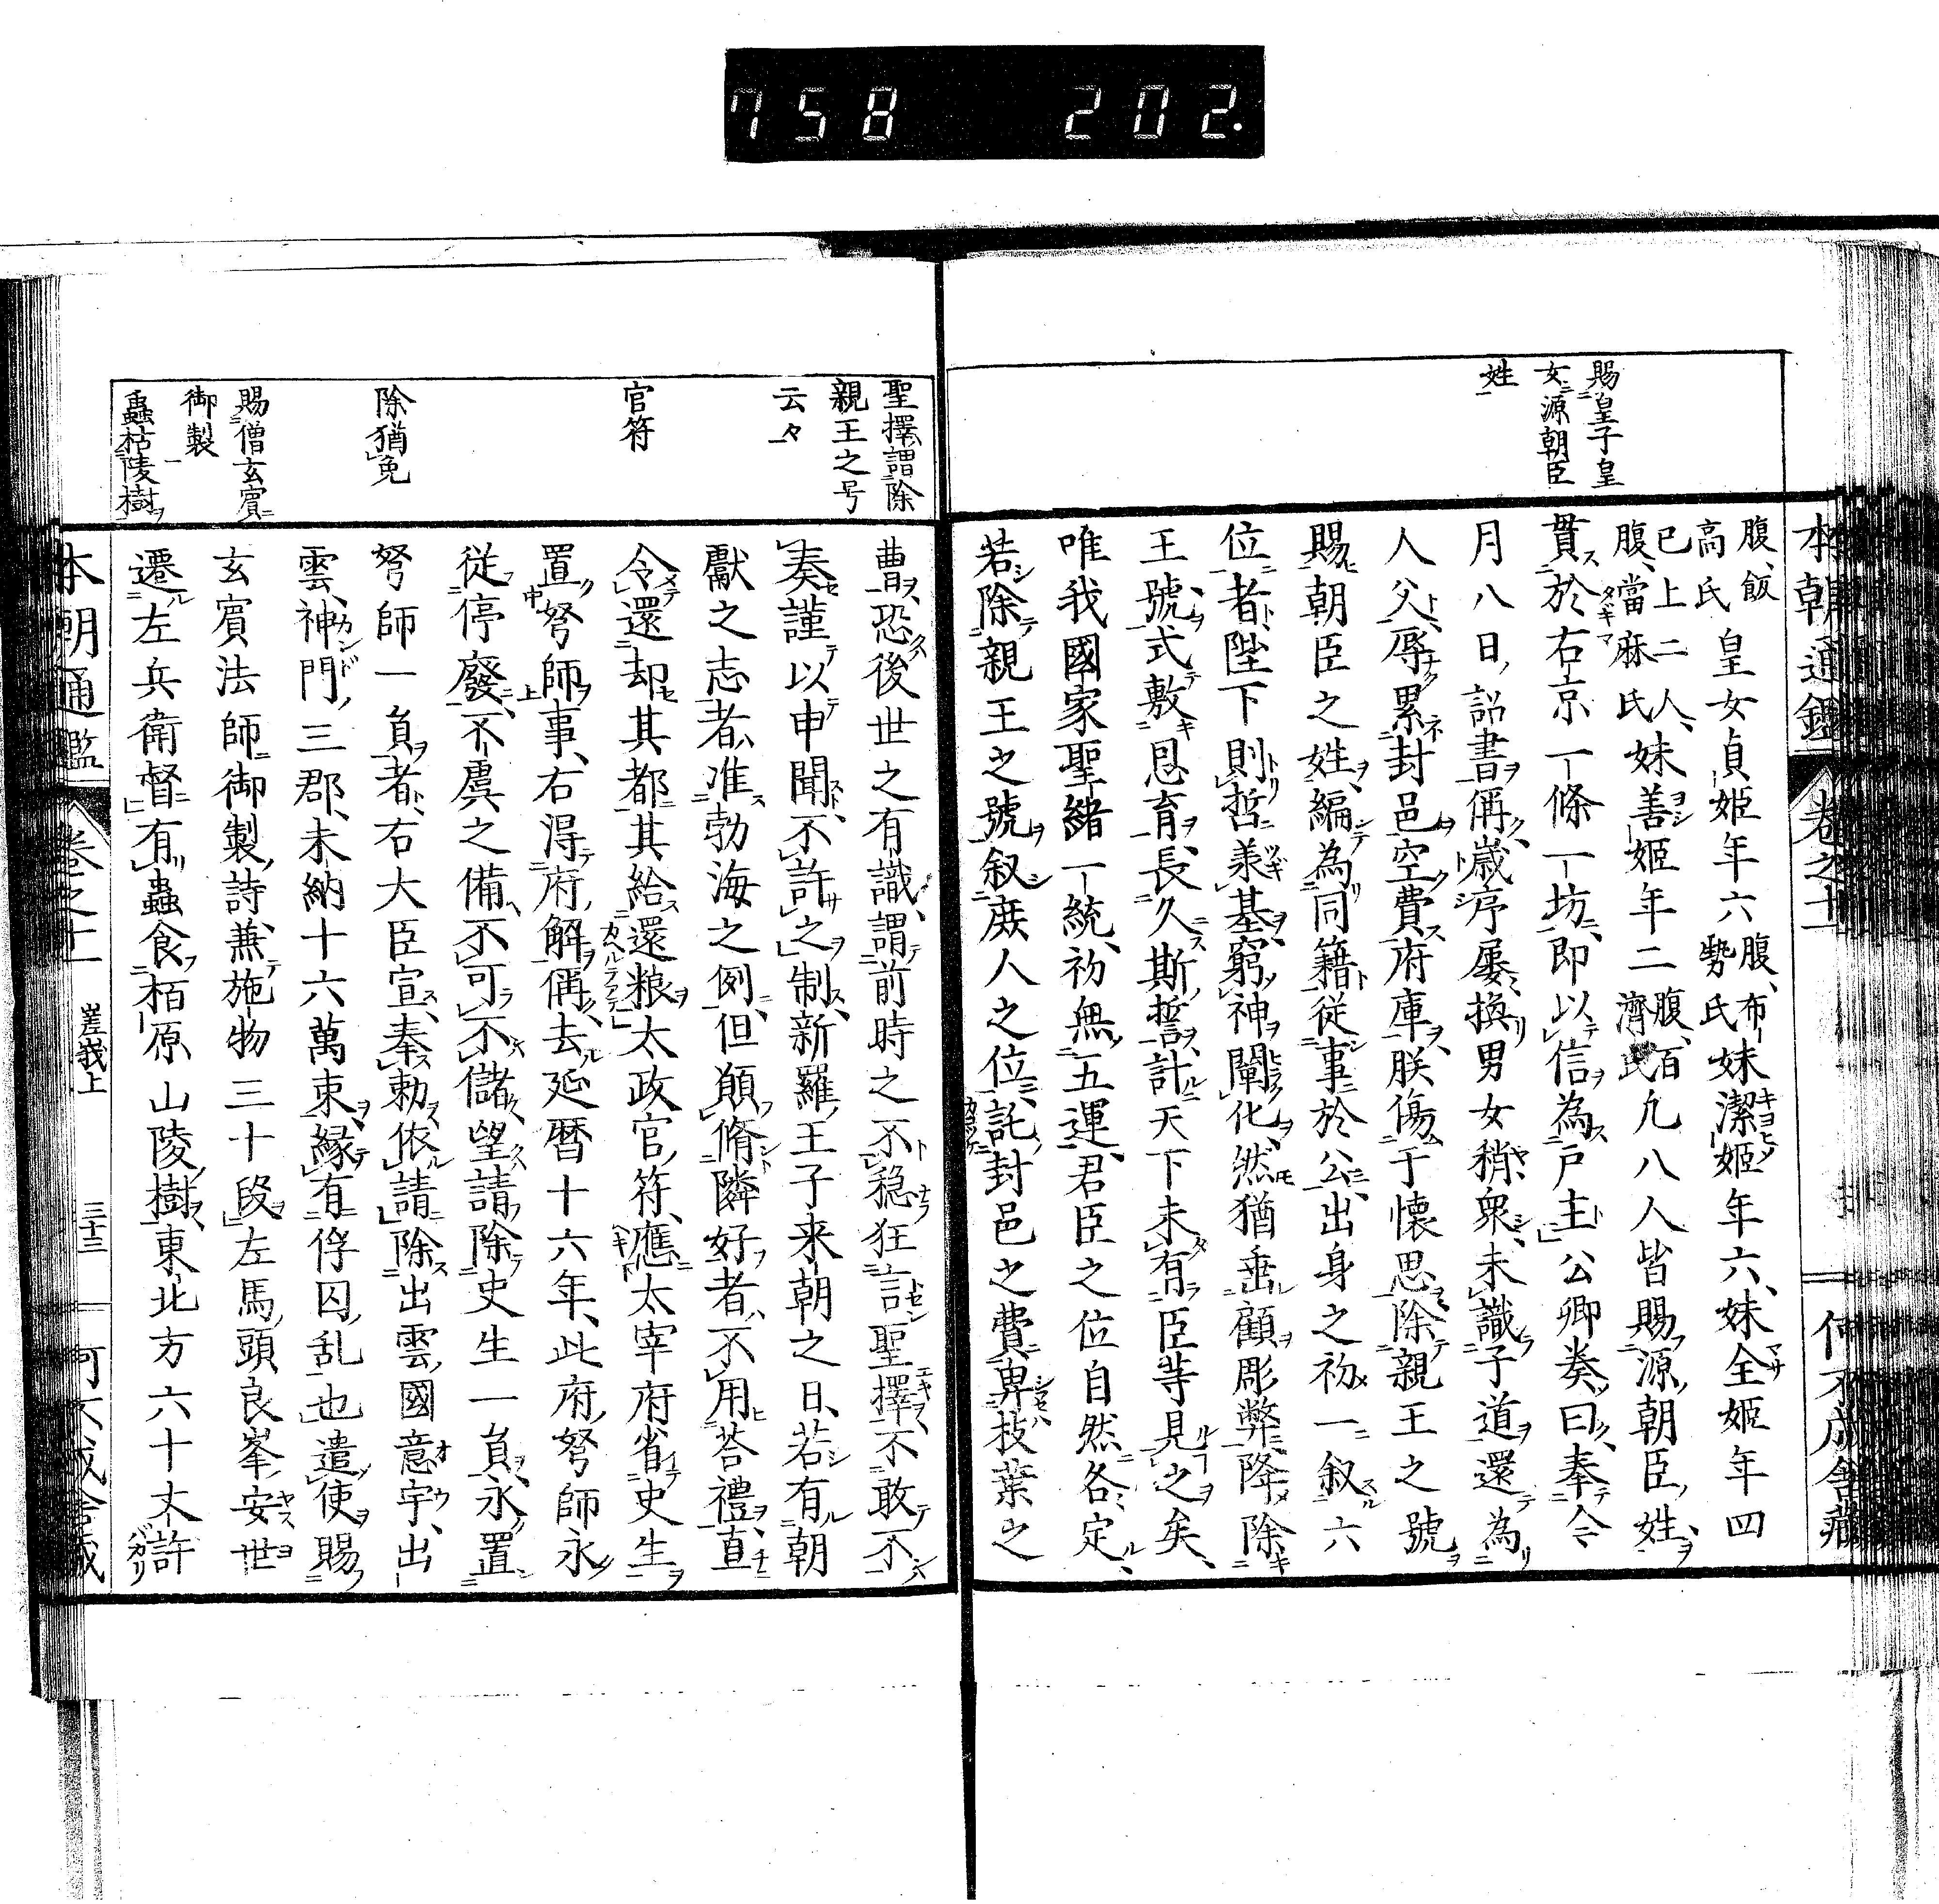 758 202.
本朝通鑑 卷之十一
何不成舎藏
賜皇子皇
女源朝臣
姓
腹飯高氏皇女貞姫年六腹布勢氏妹潔姫年六妹全姫年四
已上二人腹當麻氏妹善姫年二腹百濟氏凡八人皆賜源朝臣姓
貫於右京一條一坊即以信為戸主公卿奏曰奉今
月八日詔書偁歳序屢換男女稍衆未識子道還為
人父辱累封邑空費府庫朕傷于懷思除親王之號
賜朝臣之姓編為同籍從事於公出身之初一叙六
位者陛下則哲羕基窮神闡化然猶垂顧彫弊降除
王號式敷恩育長久斯誓計天下未有臣等見之矣
唯我國家聖緒一統初無五運君臣之位自然各定
若除親王之號叙庶人之位託封邑之費卑枝葉之
聖擇謂除
親王之号
云々
官符
除猶免
賜僧玄賓
御製
蟲枯陵樹
曹恐後世之有識謂前時之不穏狂言聖擇不敢不
奏謹以申聞不許之制新羅王子来朝之日若有朝
獻之志者准勃海之例但願脩隣好者不用荅禮直
令還却其都其給還粮太政官符應太宰府省史生
置弩師事右得府解偁去延暦十六年此府弩師永
從停廢不虞之備不可不儲望請除史生一負永置
弩師一負者右大臣宣奉勅依請除出雲國意宇出
雲神門三郡未納十六萬束縁有俘囚乱也遣使賜
玄賓法師御製詩兼施物三十段左馬頭良峯安世
遷左兵衛督有蟲食栢原山陵樹東北方六十丈許
本朝通鑑 卷之十一 嵳峩上 三十三 何不成舎藏